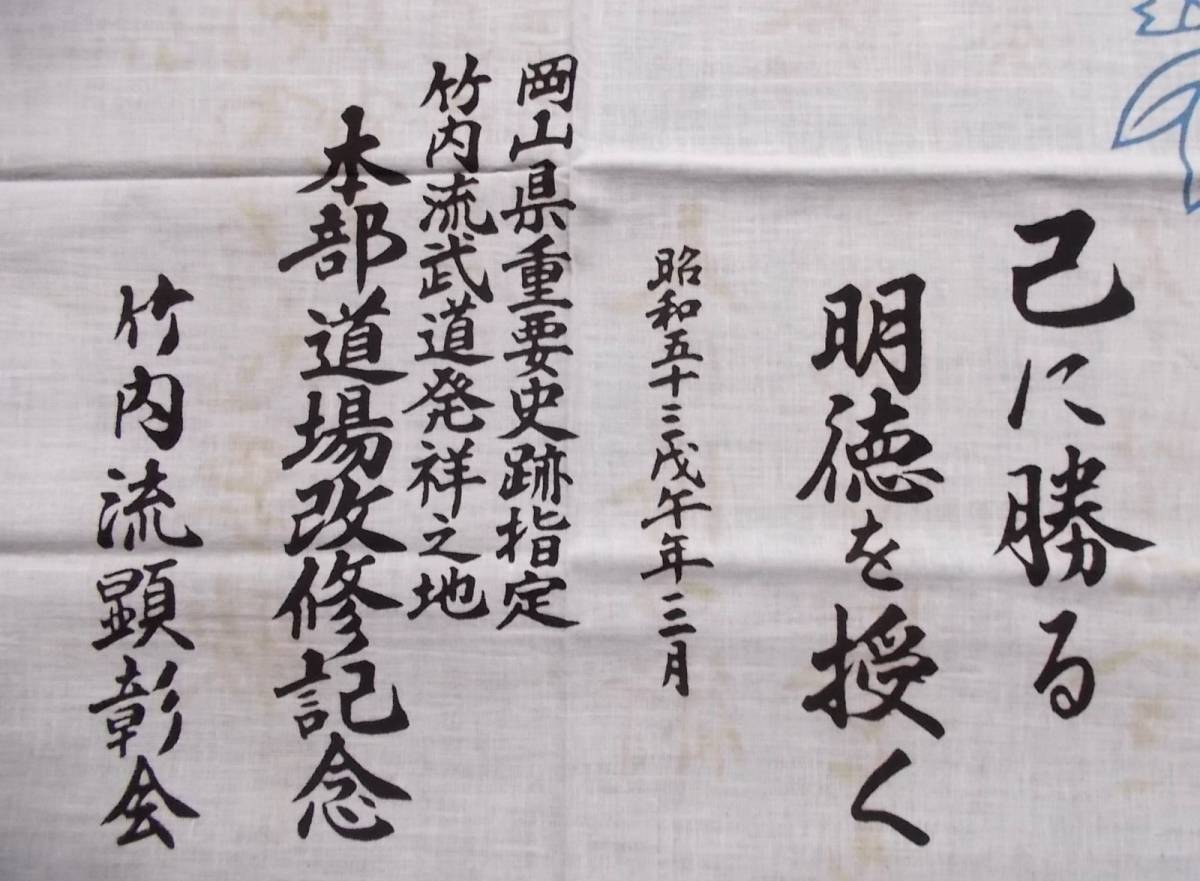 己に勝る
明徳を授く
昭和五十三戊午年三月
岡山県重要史跡指定
竹内流武道発祥之地
本部道場改修記念
竹内流顕彰会